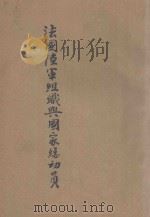 法國陸軍組織與國家總動員